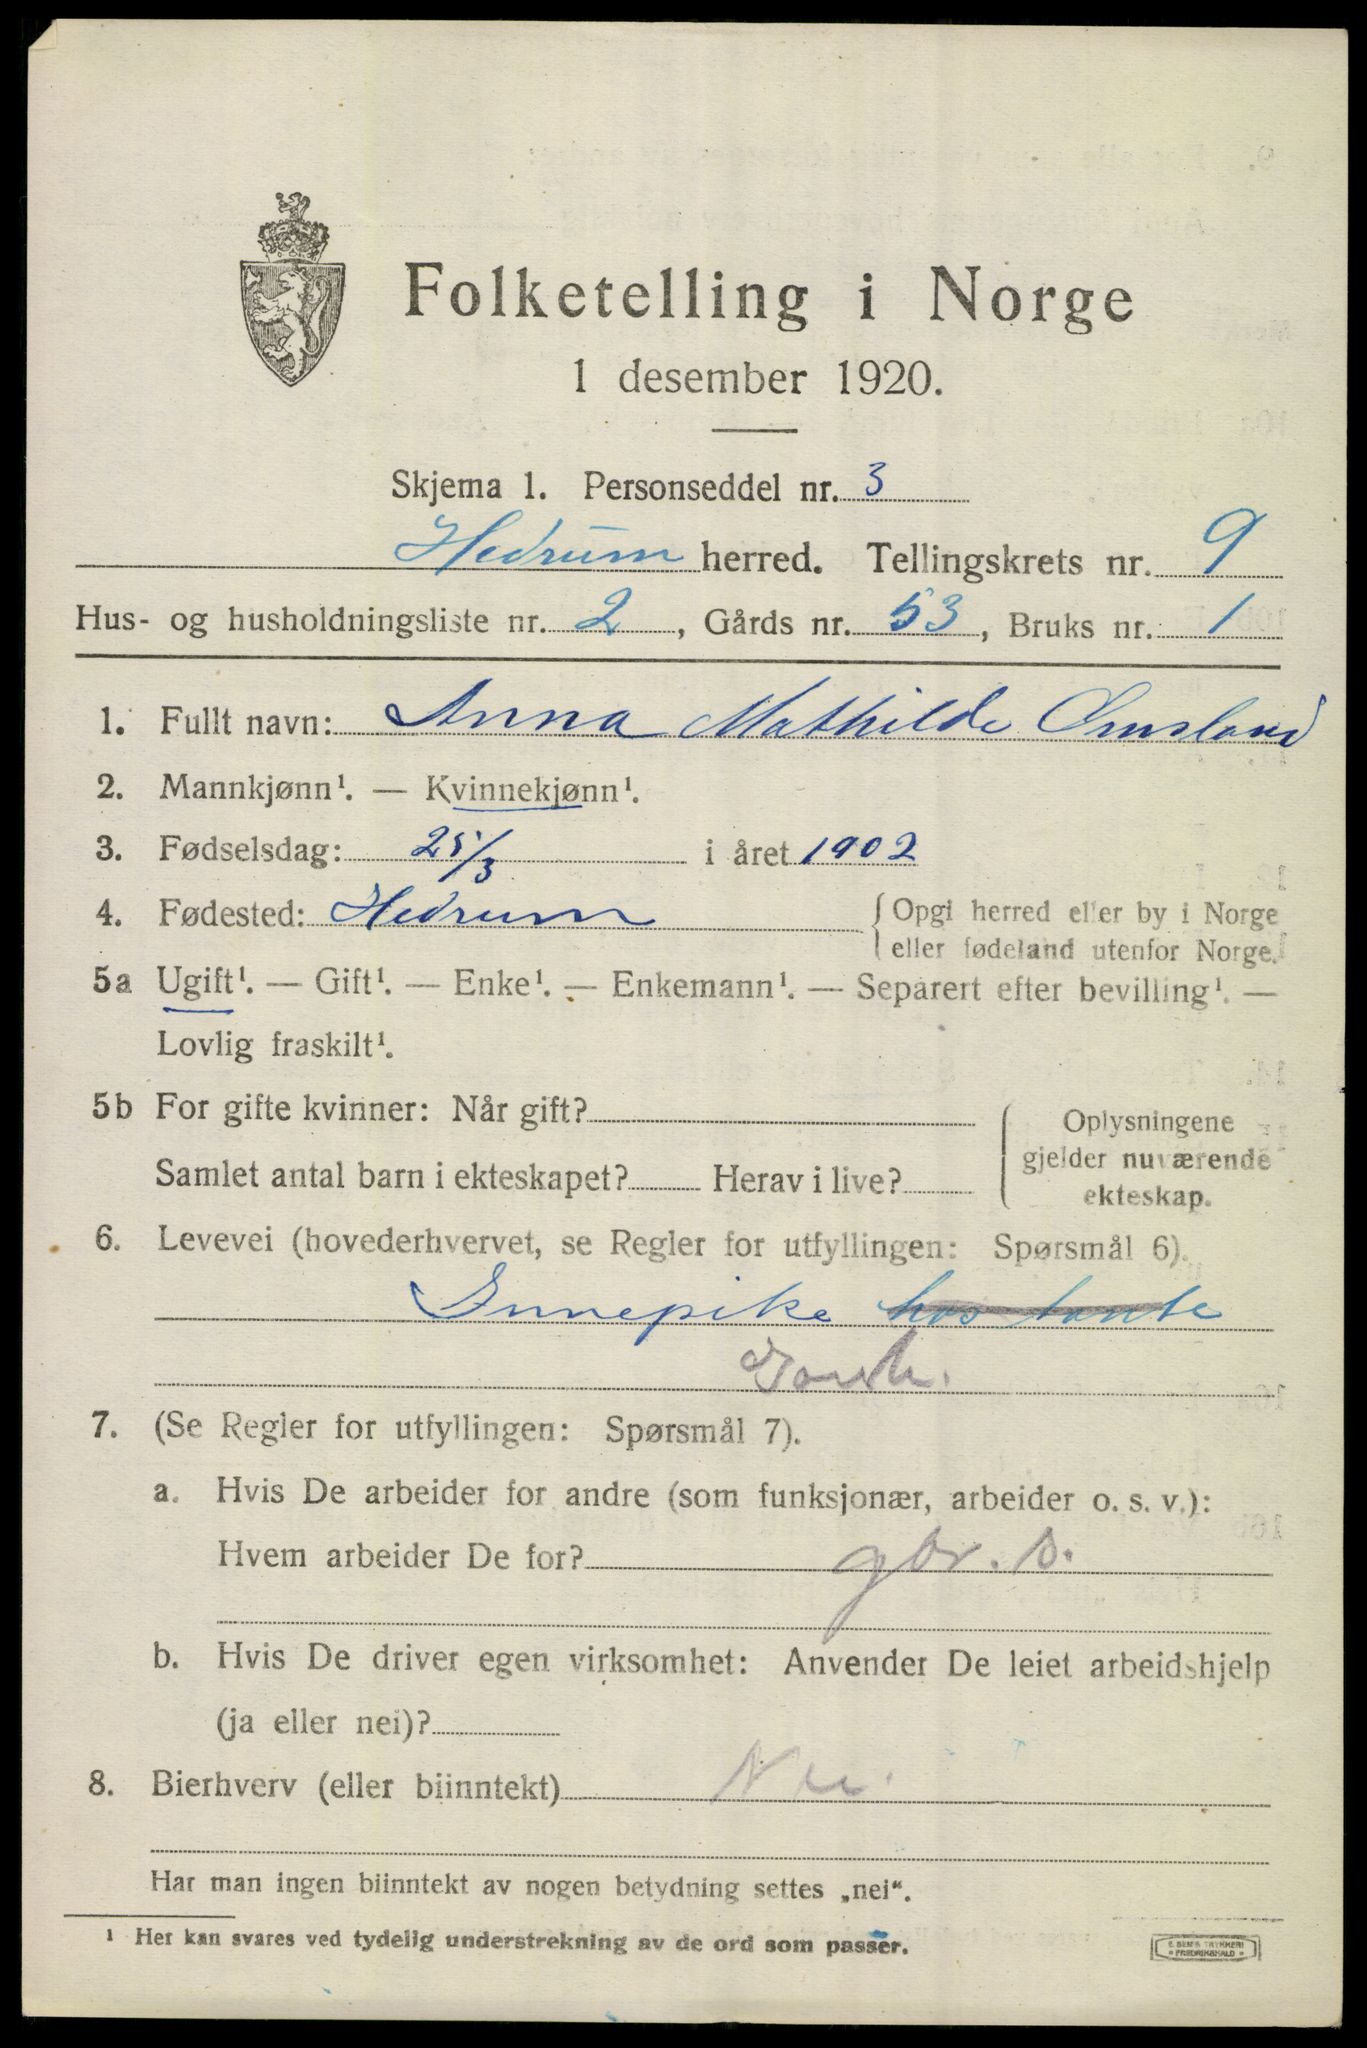 Folketelling i Norge
1 desember 1920.
Skjema 1. Personseddel nr. 3
Hedrum herred. Tellingskrets nr. 9
Hus- og husholdningsliste nr. 2, Gårds nr. 53, Bruks nr. 1
1. Fullt navn: Anna Mathilde Ømsland
2. Mannkjønn¹. — Kvinnekjønn¹.
3. Fødselsdag: 25/3 i året 1902
4. Fødested: Hedrum {Opgi herred eller by i Norge
eller fødeland utenfor Norge.
5a Ugift¹. — Gift¹. — Enke¹. — Enkemann¹. — Separert efter bevilling¹. —
Lovlig fraskilt¹.
5b For gifte kvinner: Når gift?
Samlet antal barn i ekteskapet? Herav i live?
Oplysningene
gjelder nuværende
ekteskap.
6. Levevei (hovederhvervet, se Regler for utfyllingen: Spørsmål 6).
Innepike hos tante
7. (Se Regler for utfyllingen: Spørsmål 7).
a. Hvis De arbeider for andre (som funksjonær, arbeider o. s. v.):
Hvem arbeider De for? gbr. D.
b. Hvis De driver egen virksomhet: Anvender De leiet arbeidshjelp
(ja eller nei)?
8. Bierhverv (eller biinntekt) Nei.
Har man ingen biinntekt av nogen betydning settes „nei“.
¹ Her kan svares ved tydelig understrekning av de ord som passer.
E. SEM'S TRYKKERI
FREDRIKSHALD